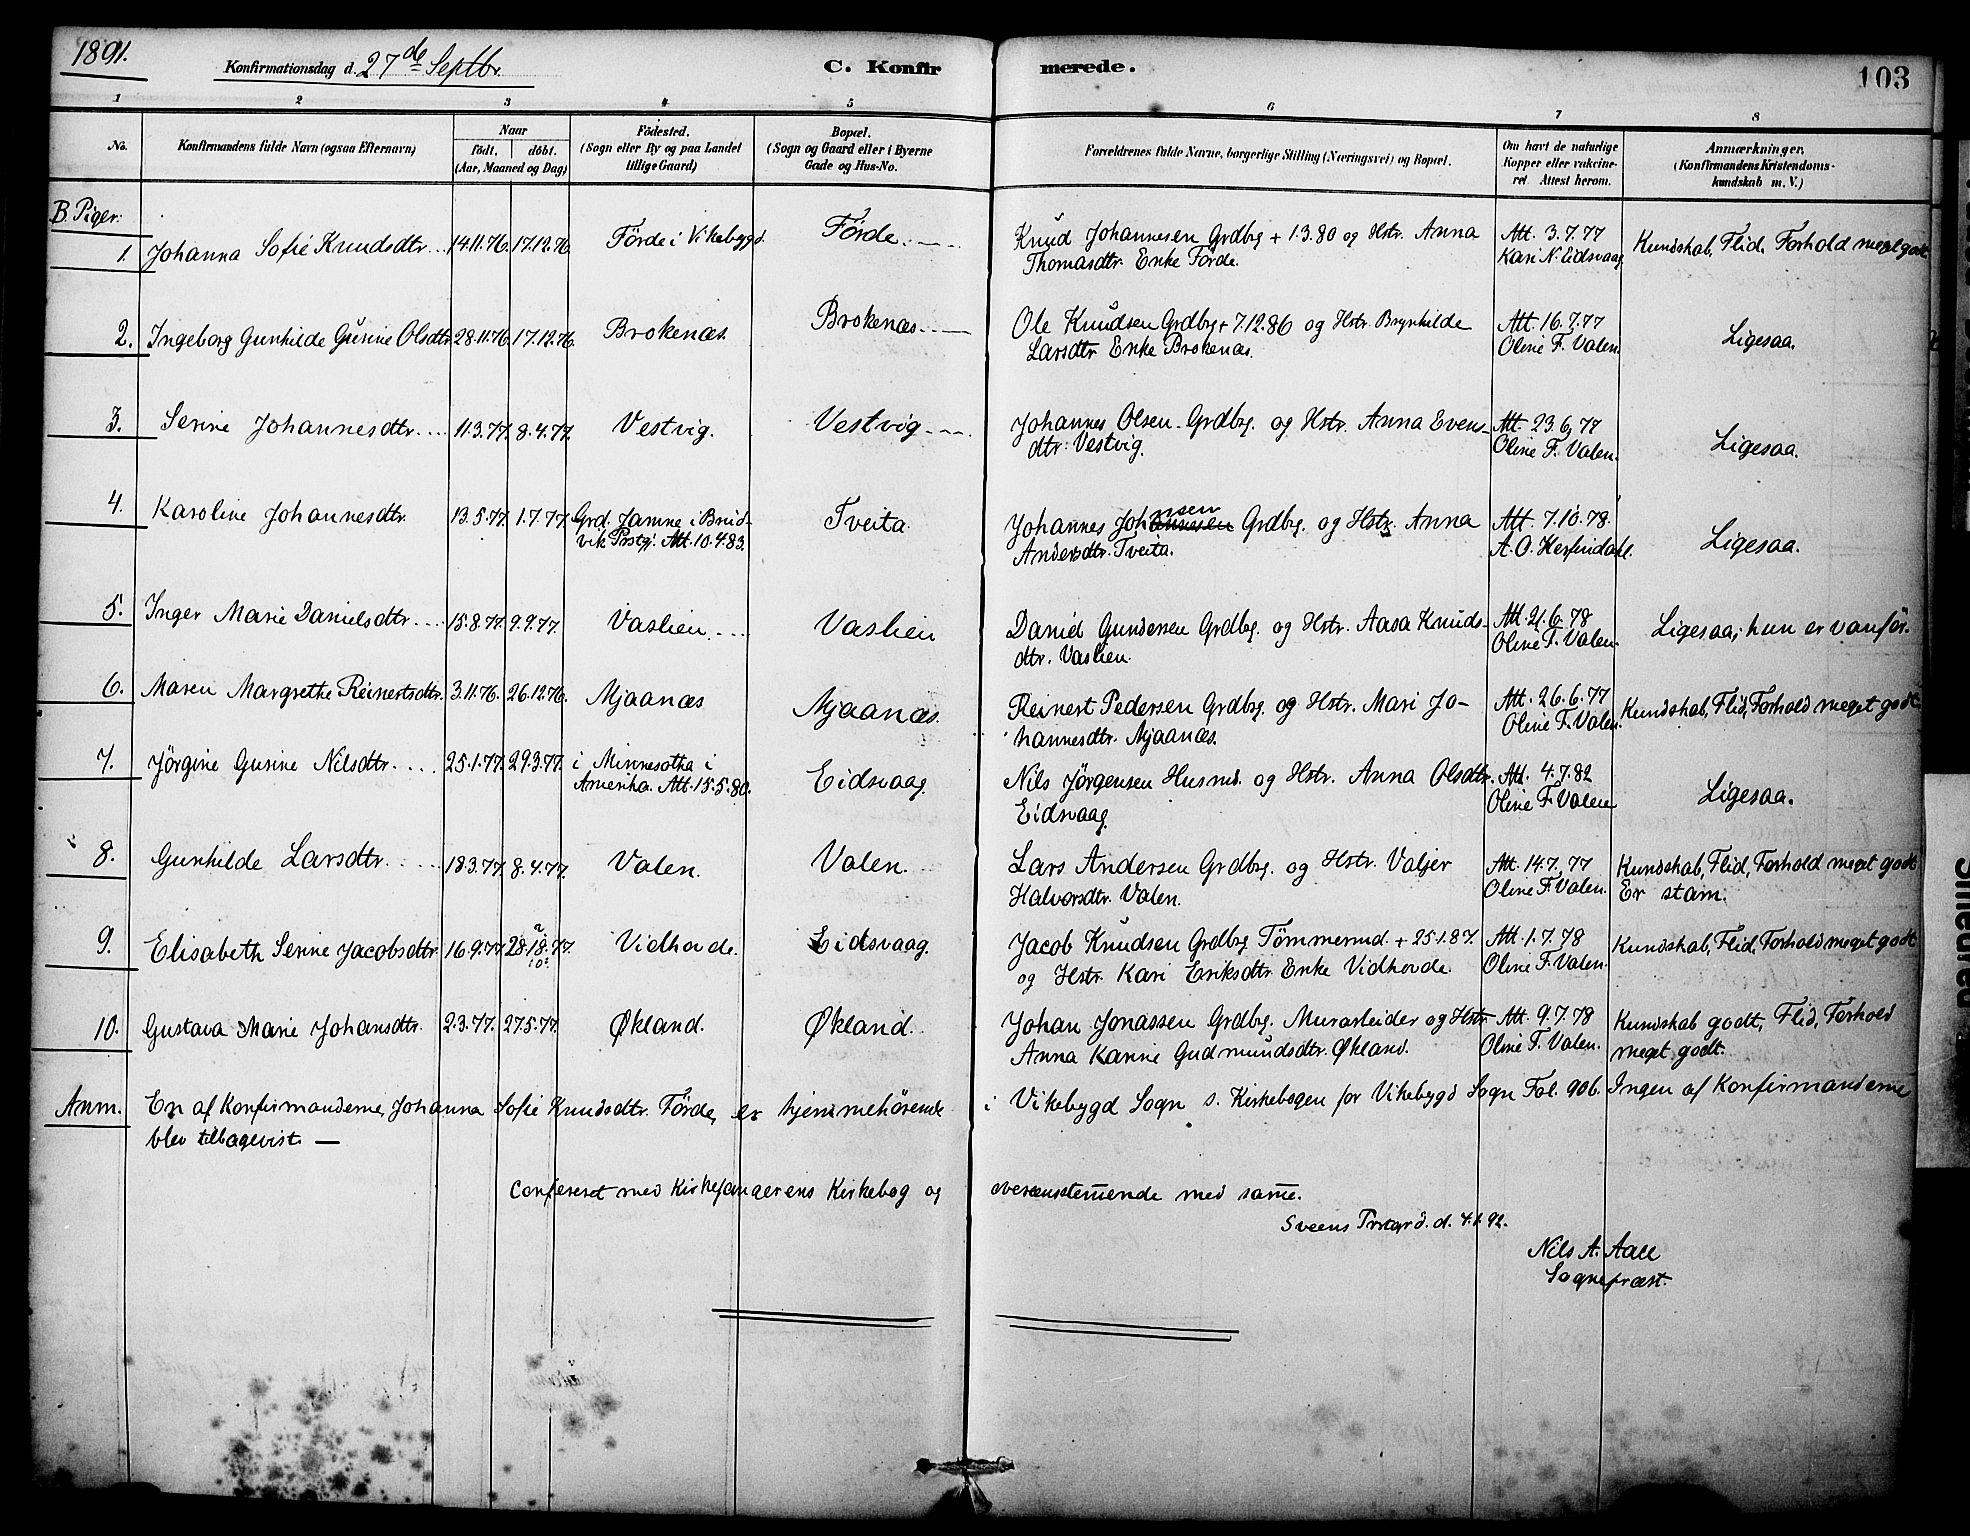 1891.
Konfirmationsdag d. 27de Septbr.
C. Konfirmerede.
103
1 2 3 4 5 6 7 8
No.
Konfirmandens fulde Navn (ogsaa Efternavn)
Naar
födt. döbt.
(Aar, Maaned og Dag)
Födested.
(Sogn eller By og paa Landet
tillige Gaard)
Bopæl.
(Sogn og Gaard eller i Byerne
Gade og Hus-No.
Forældrenes fulde Navne, borgerlige Stilling (Næringsvei) og Bopæl.
Om havt de naturlige
Kopper eller vakcine-
ret. Attest herom.
Anmærkninger,
(Konfirmandens Kristendoms-
kundskab m. V.)
B. Piger:
1. Johanna Sofie Knudsdtr. 14.11.76. 17.12.76. Förde i Vikebygd Förde. Knud Johannesen Grdbrg + 1.3.80 og Hstr. Anna Att. 3.7.77 Kundskab, Flid, Forhold meget godt
Thomasdtr. Enke Förde. Kari N. Eidsvaag
2. Ingeborg Gunhilde Gurine Olsdtr 28.11.76. 17.12.76. Brokenæs. Brokenæs Ole Knudsen Grdbrg + 7.12.86 og Hstr. Brynhilde Att. 16.7.77 Ligesaa.
Larsdtr Enke Brokenæs. Oline F. Valen.
3. Serine Johannesdtr. 11.3.77. 8.4.77. Vestvig. Vestvig Johannes Olsen Grdbrg. og Hstr. Anna Evens- Att. 23.6.77 Ligesaa.
dtr. Vestvig. Oline F. Valen.
4. Karoline Johannesdtr. 13.5.77. 1.7.77. Grd. Jamne i Brud- Tveita Johannes Johannesen nsen Grdbrg. og Hstr. Anna Att. 7.10.78. Ligesaa.
vik Prstgj. Att. 10.4.83. Andersdtr. Tveita. A. O. Herfindahl.
5. Inger Marie Danielsdtr. 15.8.77. 9.9.77. Vaslien. Vaslien Daniel Gundersen Grdbrg. og Hstr. Aasa Knuds- Att. 21.6.78 Ligesaa; hun er vanför.
dtr. Vaslien. Oline F. Valen.
6. Maren Margrethe Reinertsdtr. 3.11.76. 26.12.76. Mjaanæs Mjaanæs. Reinert Pedersen Grdbrg. og Hstr. Mari Jo- Att. 26.6.77 Kundskab, Flid, Forhold meget godt.
hannesdtr. Mjaanæs. Oline F. Valen.
7. Jörgine Gurine Nilsdtr. 25.1.77. 29.3.77. i Minnesotha i Eidsvaag. Nils Jörgensen Husmd. og Hstr. Anna Olsdtr. Att. 4.7.82 Ligesaa.
Amerika. Att. 15.5.80. Eidsvaag. Oline F. Valen
8. Gunhilde Larsdtr. 18.3.77. 8.4.77. Valen. Valen. Lars Andersen Grdbrg. og Hstr. Valjer Att. 14.7.77 Kundskab, Flid, Forhold meget godt
Halvorsdtr. Valen. Oline F. Valen. Er stam.
9. Elisabeth Serine Jacobsdtr. 16.9.77. Vidhovde. Eidsvaag. Jacob Knudsen Grdbrg Tömmermd. + 25.1.87. Att. 1.7.78 Kundskab, Flid, Forhold meget godt
og Hstr. Kari Eriksdtr. Enke Vidhovde. Oline F. Valen.
10. Gustava Marie Johansdtr. 2.3.77. 27.5.77. Økland. Økland. Johan Jonassen Grdbrg. Murarbeider og Hstr Att. 9.7.78 Kundskab godt, Flid, Forhold
Anna Karine Gudmundsdtr. Økland. Oline F. Valen. meget godt.
Anm. En af Konfirmanderne, Johanna Sofie Knudsdtr. Förde, er hjemmehörende i Vikebygd Sogn s. Kirkebogen for Vikebygd Sogn Fol. 90b. Ingen af Konfirmanderne
blev tilbagevist. —
Confereret med Kirkesangerens Kirkebog og overensstem̄ende med sam̄e.
Sveens Prstgrd. d. 4.1.92.
Nils A. Aall
Sognepræst.